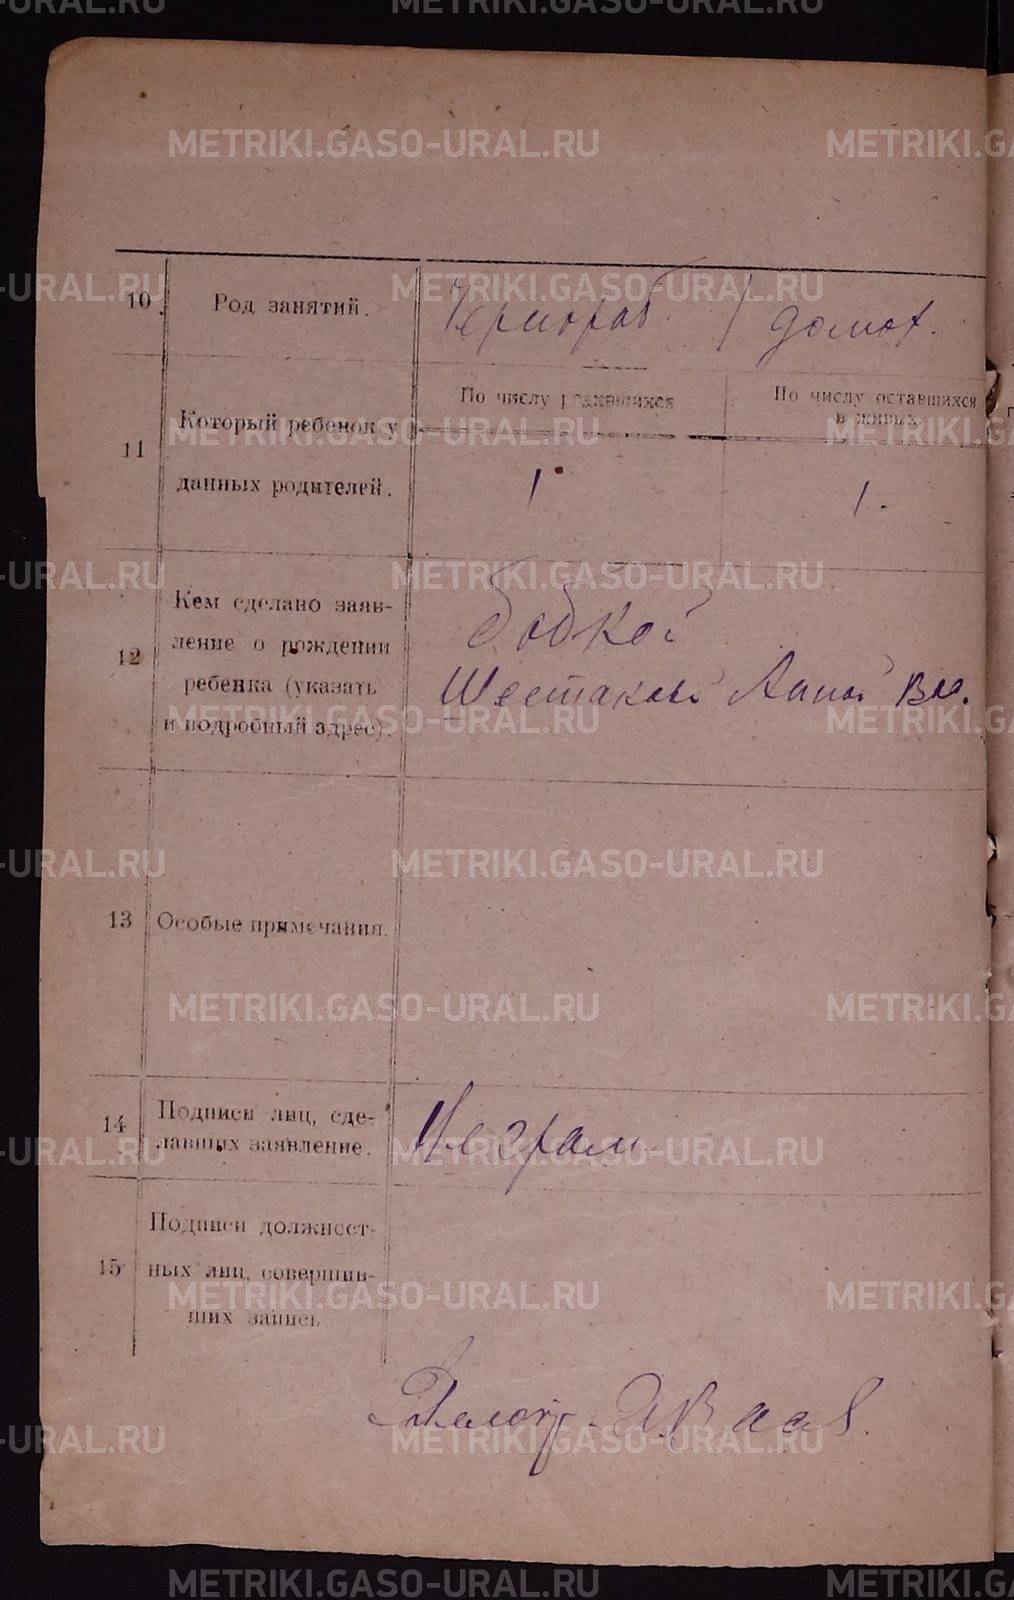 10 Род занятий. Чернораб. / домох.
11 Который ребенок у данных родителей.
По числу родившихся
По числу оставшихся
в живых.
1
1.
12 Кем сделано заяв-
ление о рождении
ребенка (указать
и подробный адрес).
бабкой
Шестаковой Анной Вас.
13 Особые примечания.
14 Подписи лиц, сде-
лавших заявление.
Неграм.
15 Подписи должност-
ных лиц, совершив-
ших запись
Делопр.
METRIKI.GASO-URAL.RU